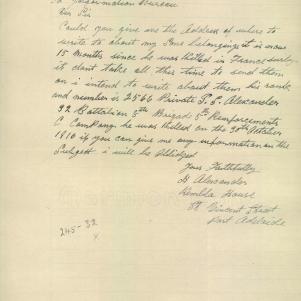 To Information Bureau
Dear Sir
Could you give me the Address of where to
write to about my Sons belongings it is now
15 months since he was killed in France surly
it dont take all this time to send them
on i intend to write about them his rank
and number is 2566 Private P. S. Alexander
32 Battalion 8th Brigade 5th Reinforcements
C Company he was killed on the 30th October
1916 if you can give me any information on the
Subject i will be Obbliged
Yours Faithfully
D Alexander
Kembla House
St Vincent Street
Port Adelaide
245-32